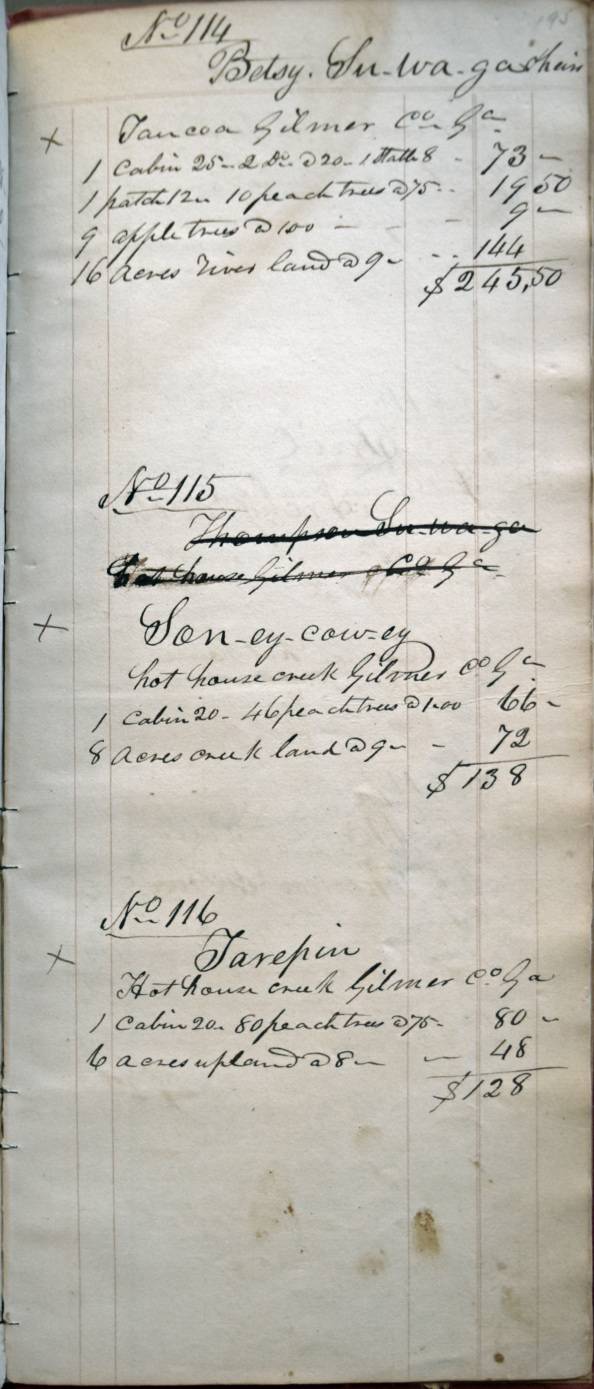 195
No 114
Betsy. Su-wa-ga heirs
x Taucoa Gilmer Co Ga
1 Cabin 25- 2 Do @ 20- 1 Stable 8 - 73 -
1 patch 12- 10 peach trees @ 75- - 19 50
9 apple trees @ 100 - - - 9 -
16 Acres river land @ 9- - - 144
$ 245,50
No 115
Thompson Su-wa-ga
Hot house Gilmer Co Ga
x Son-ey-cow-ey
hot house creek Gilmer Co Ga
1 Cabin 20- 46 peach trees @ 1.00 66 -
8 Acres creek land @ 9- - 72
$ 138
No 116
x Tarepin
Hot house creek Gilmer Co Ga
1 Cabin 20- 80 peach trees @ 75- 80 -
6 acres upland @ 8- - 48
$ 128